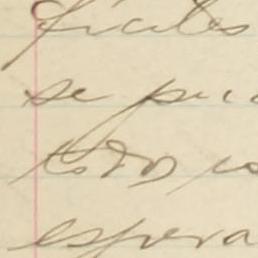 fáciles
se pue
todos
espera